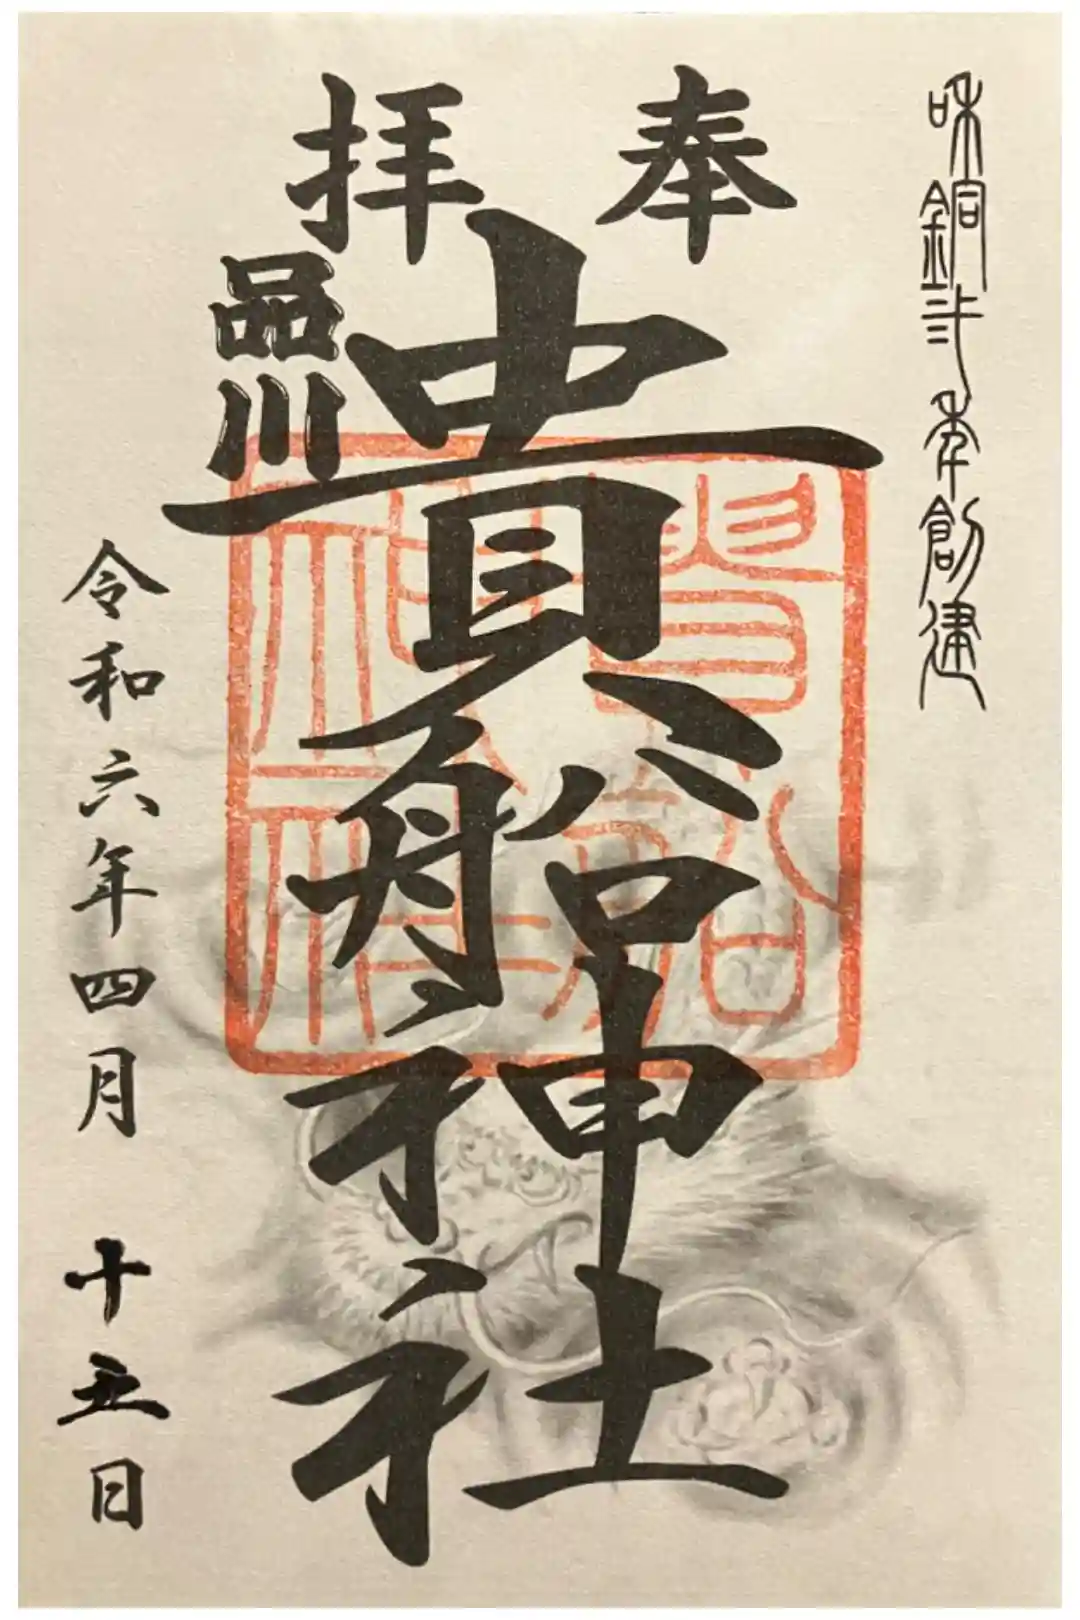 和銅弍年創建
奉拝
品川
貴船神社
貴船
神社
令和六年四月十五日